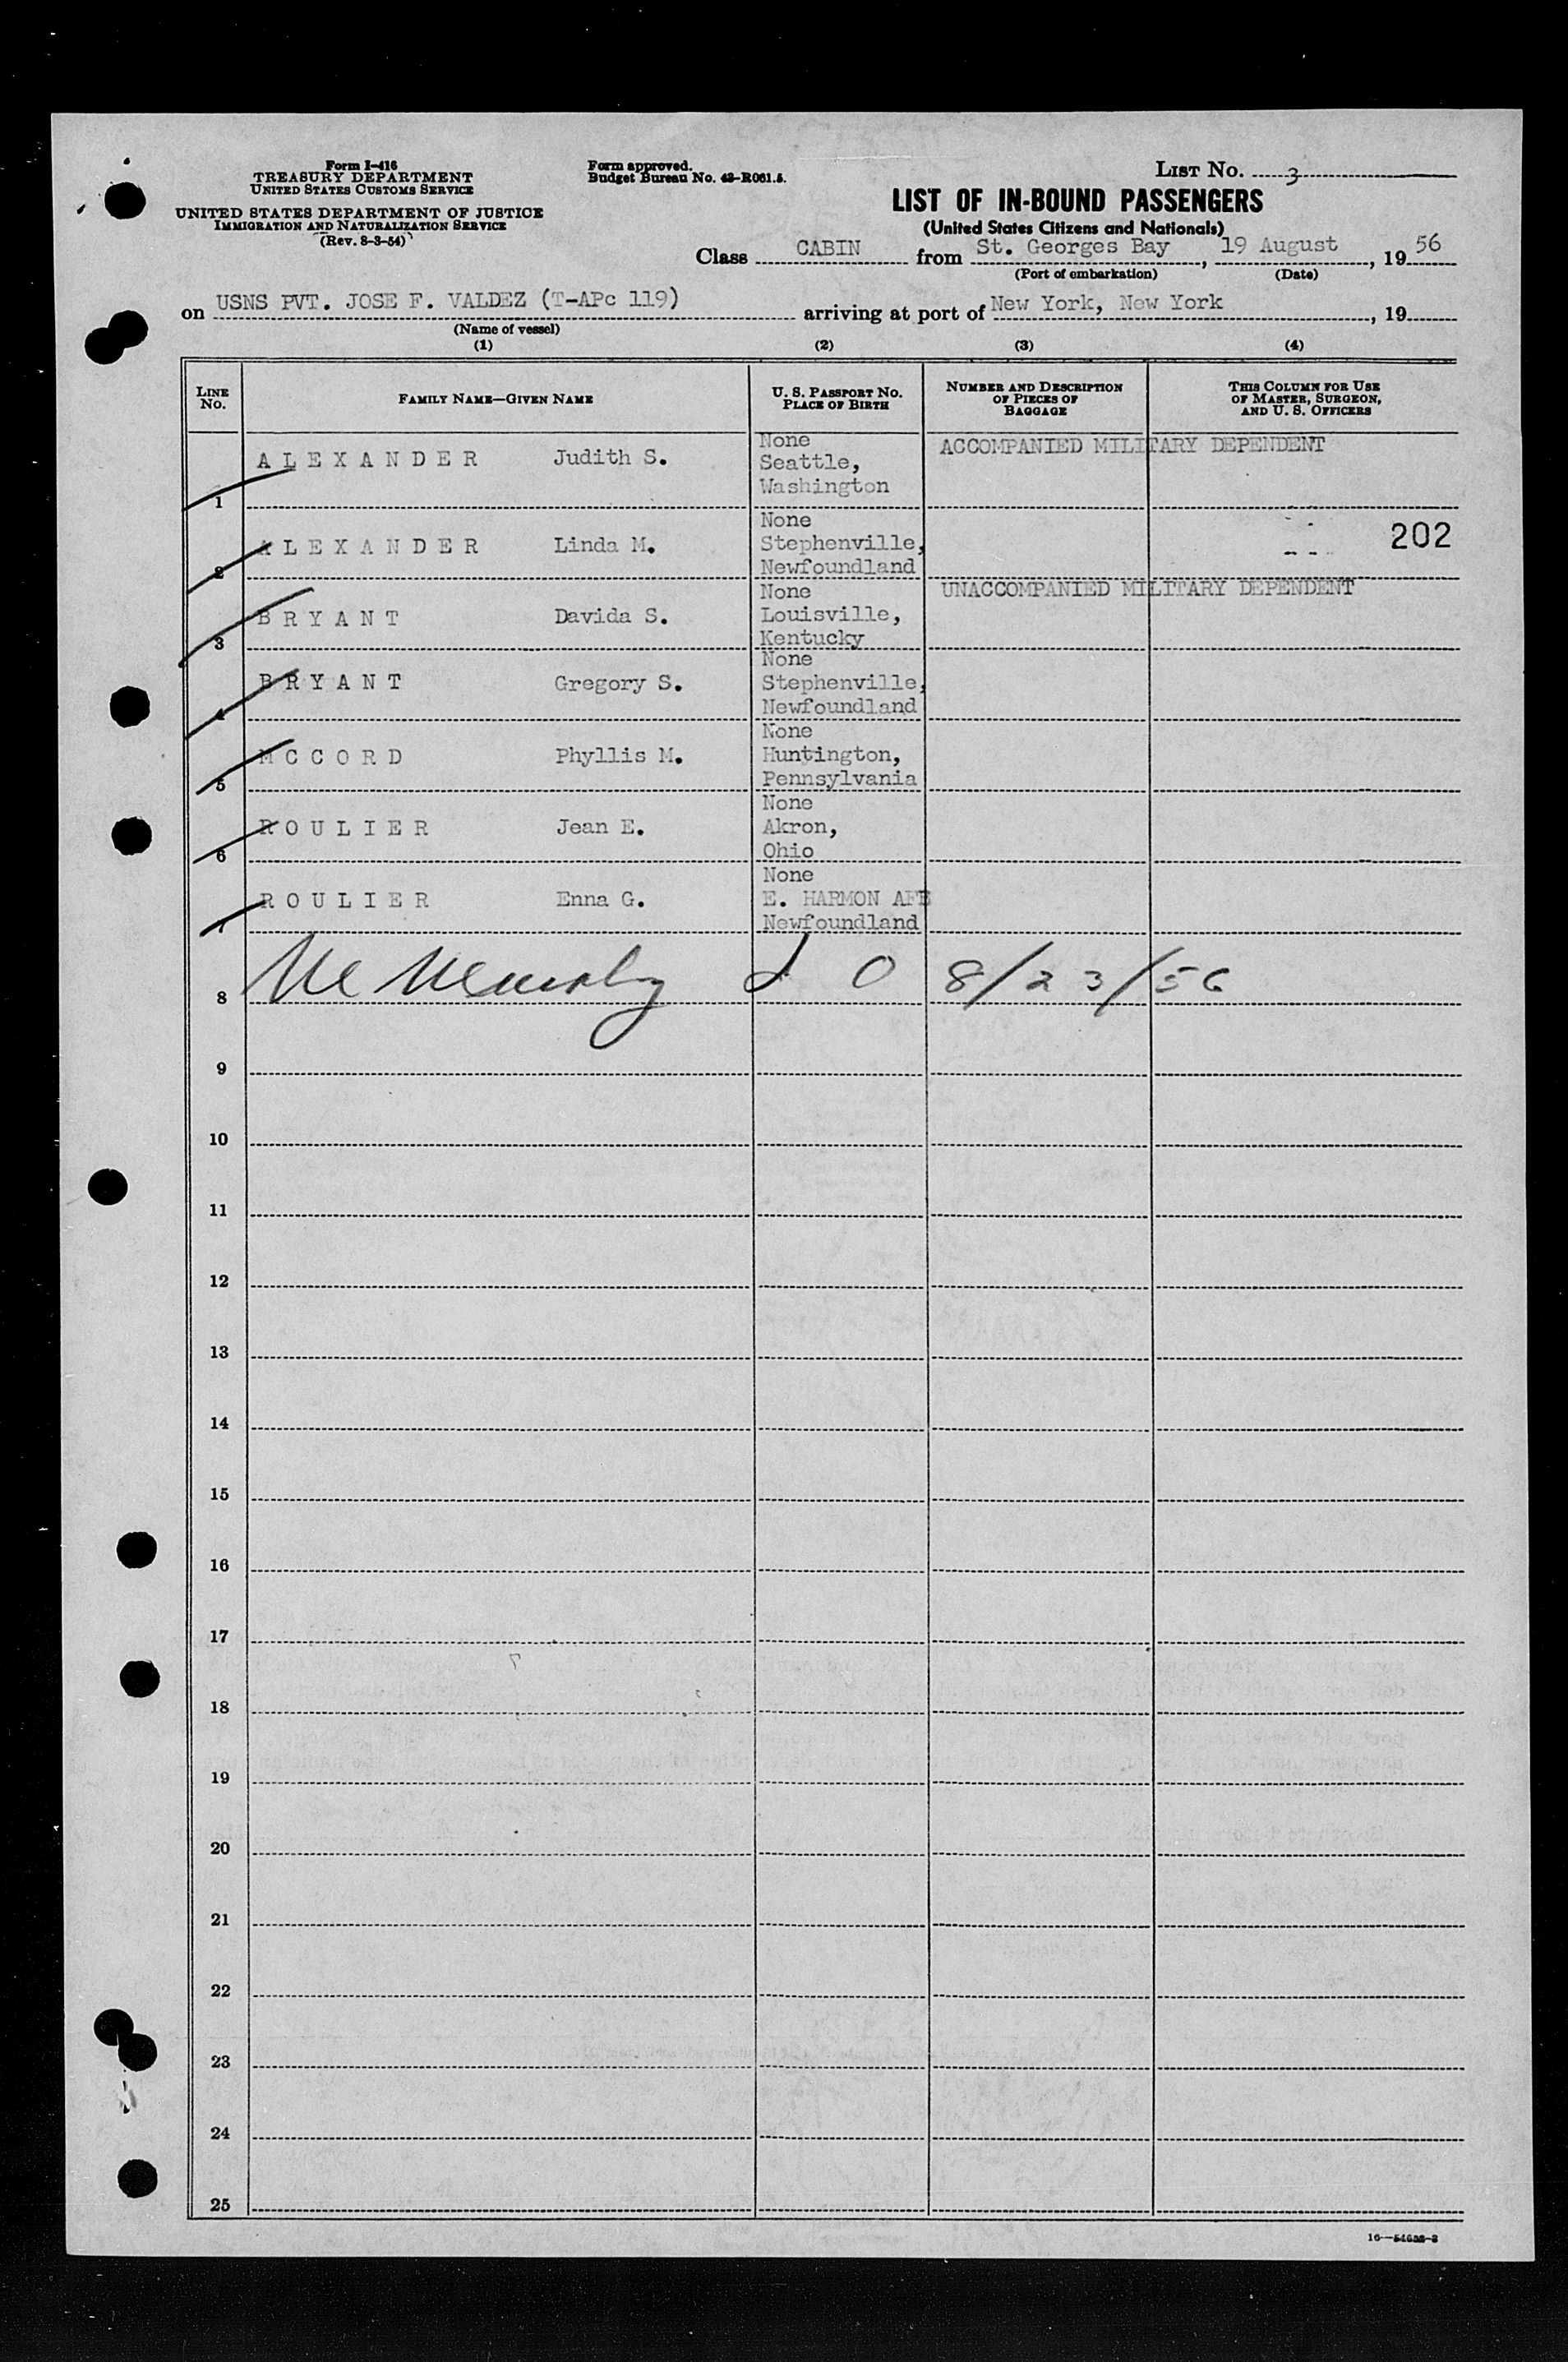 Form I-416
TREASURY DEPARTMENT
UNITED STATES CUSTOMS SERVICE
UNITED STATES DEPARTMENT OF JUSTICE
IMMIGRATION AND NATURALIZATION SERVICE
(Rev. 8-3-54)
Form approved.
Budget Bureau No. 43-R061.5.
LIST No. 3
LIST OF IN-BOUND PASSENGERS
(United States Citizens and Nationals)
Class CABIN from St. Georges Bay, 19 August, 1956
(Port of embarkation) (Date)
on USNS PVT. JOSE F. VALDEZ (T-APc 119) arriving at port of New York, New York, 19
(Name of vessel)
(1) (2) (3) (4)
LINE No.
FAMILY NAME—GIVEN NAME
U. S. PASSPORT No.
PLACE OF BIRTH
NUMBER AND DESCRIPTION
OF PIECES OF
BAGGAGE
THIS COLUMN FOR USE
OF MASTER, SURGEON,
AND U. S. OFFICERS
1 ALEXANDER Judith S.
None
Seattle,
Washington
ACCOMPANIED MILITARY DEPENDENT
2 ALEXANDER Linda M.
None
Stephenville,
Newfoundland
202
3 BRYANT Davida S.
None
Louisville,
Kentucky
UNACCOMPANIED MILITARY DEPENDENT
4 BRYANT Gregory S.
None
Stephenville,
Newfoundland
5 MCCORD Phyllis M.
None
Huntington,
Pennsylvania
6 ROULIER Jean E.
None
Akron,
Ohio
7 ROULIER Enna G.
None
E. HARMON AFB
Newfoundland
8 8/23/56
9
10
11
12
13
14
15
16
17
18
19
20
21
22
23
24
25